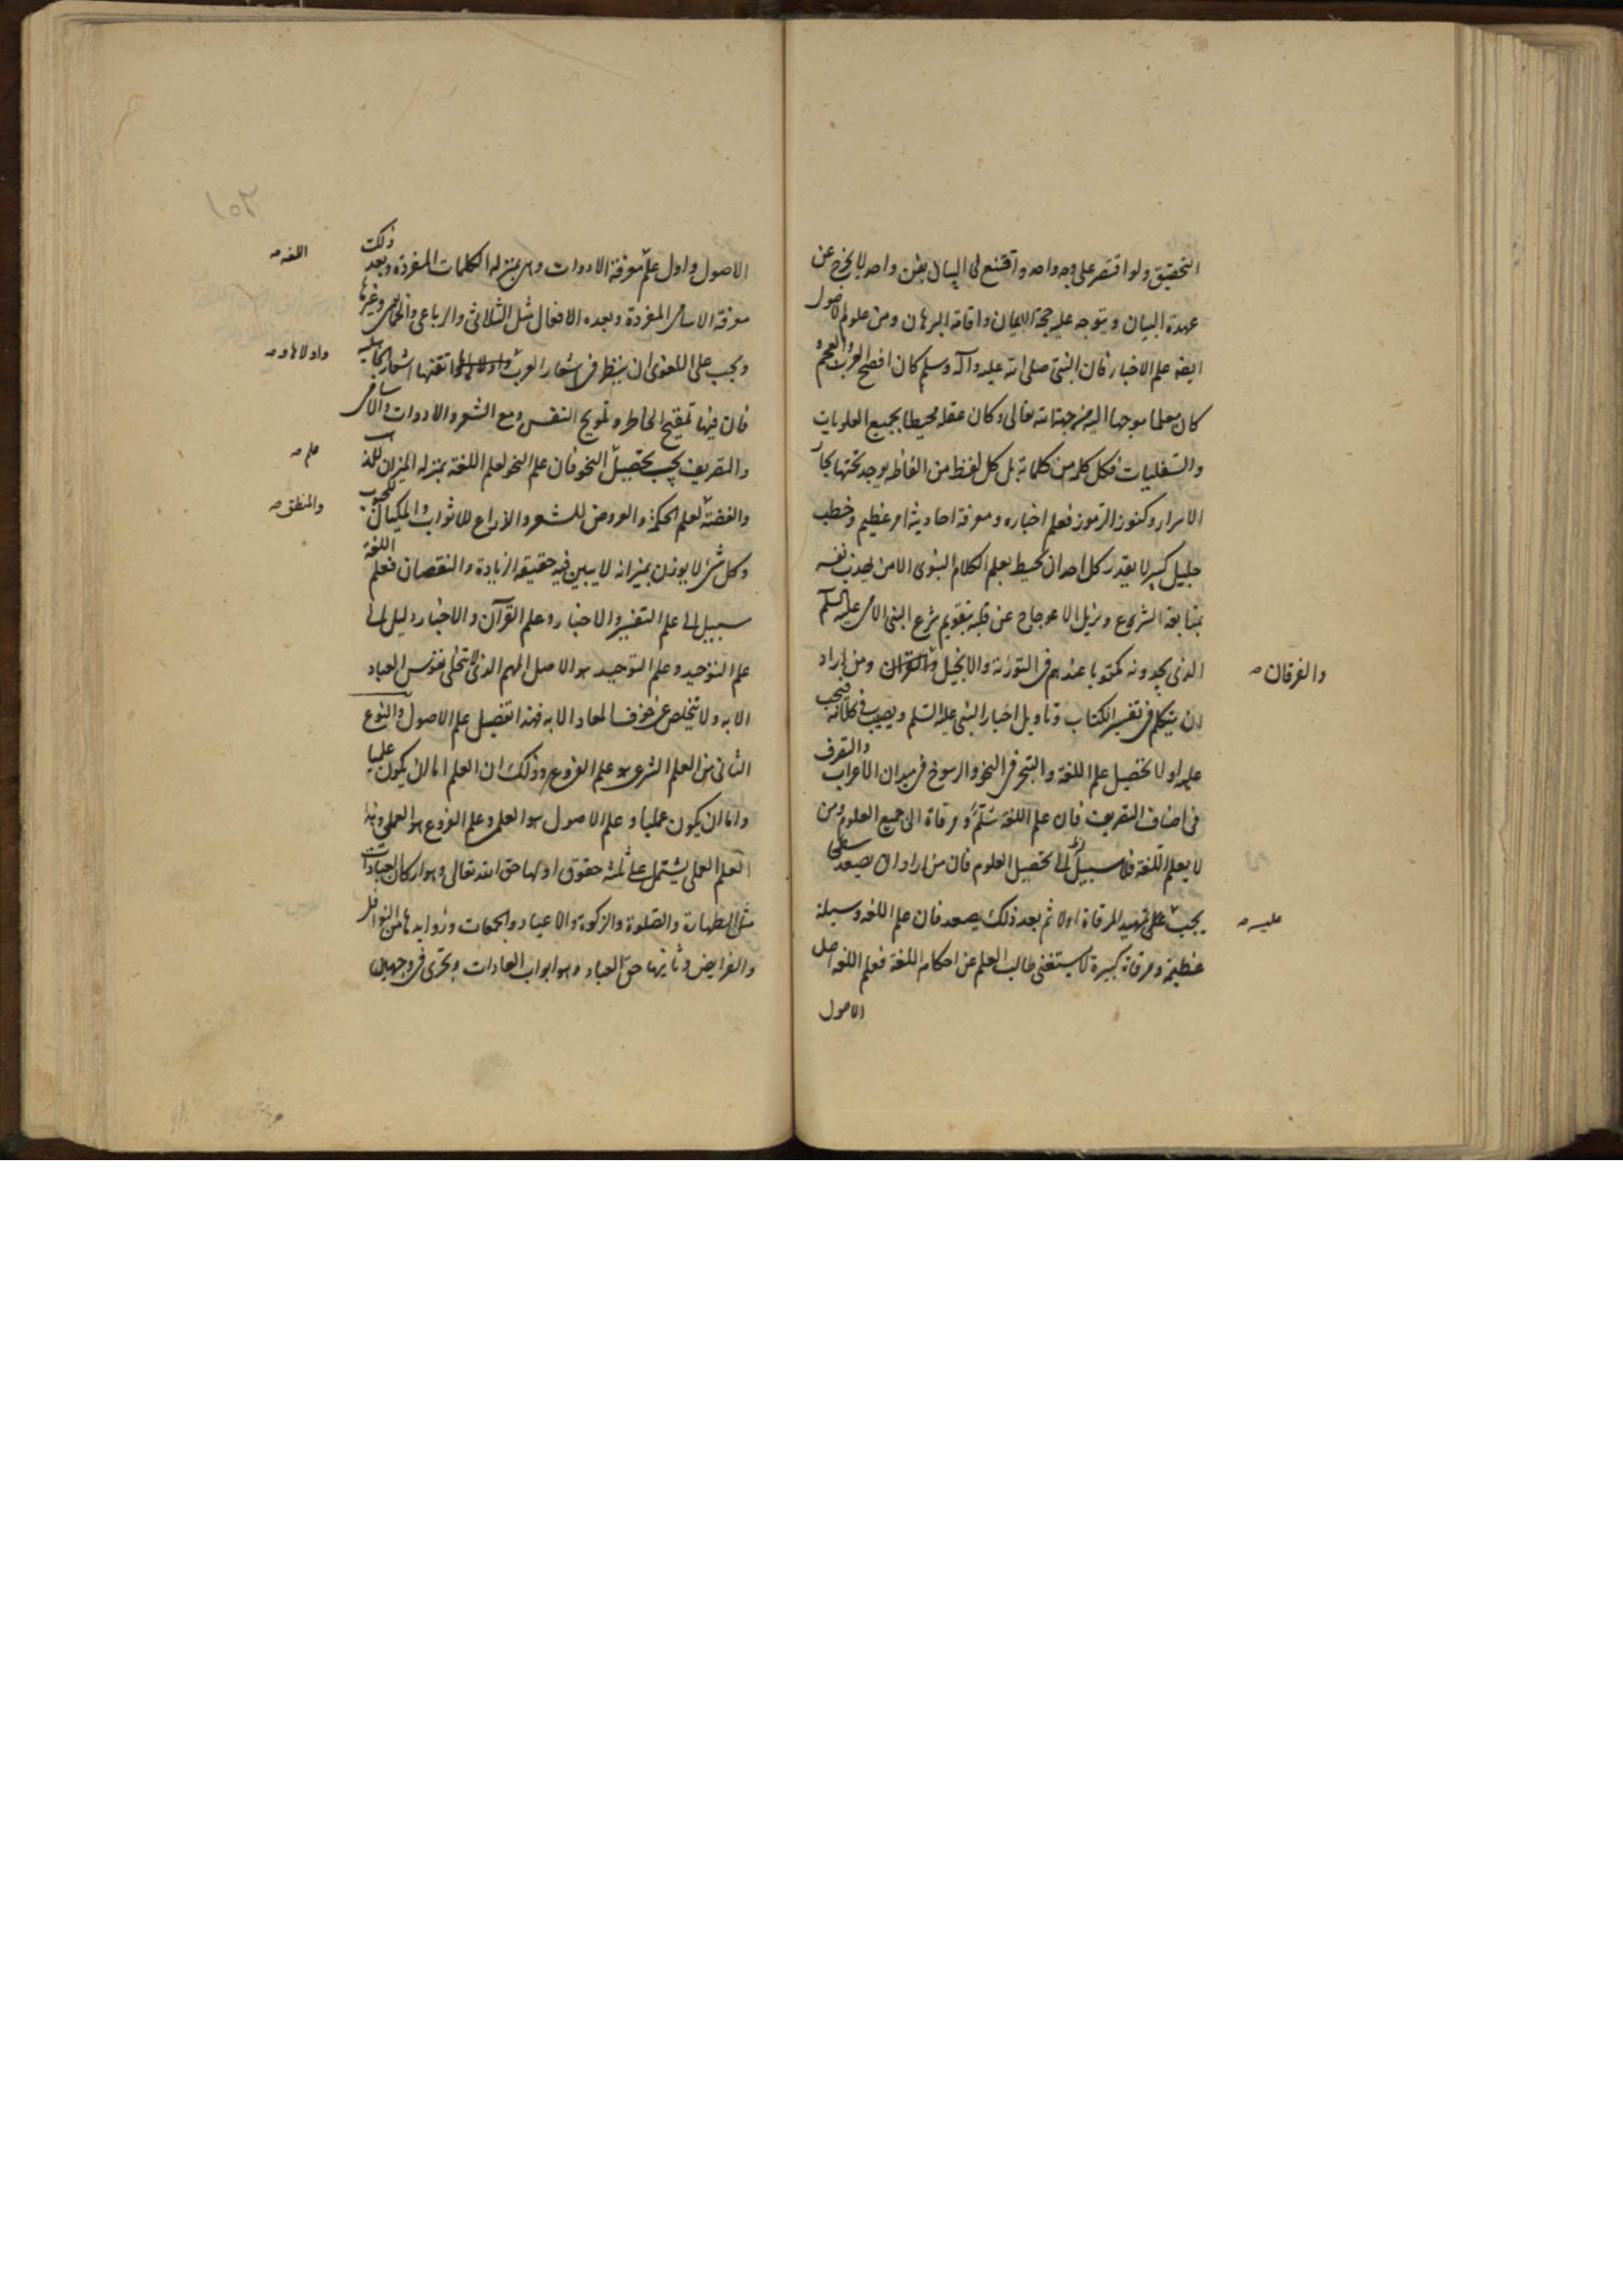 التحقيق ولو اقتصر على وجه واحد واقتنع فى البيان بفن واحد لا يخرج عن
عهدة البيان ويتوجه عليه حجة الايمان واقامة البرهان ومن علوم الاصول
ايضا علم الاخبار فان النبى صلى الله عليه وآله وسلم كان افصح العرب والعجم و
كان معلما يوحى اليه من جهة الله تعالى وكان عقله محيطا بجميع العلويات
والسفليات فكل كلمة من كلماته بل كل لفظ من الفاظه يوجد تحتها بحار
الاسرار وكنوز الرموز فعلم اخباره ومعرفة احاديثه امر عظيم وخطب
جليل كبير لا يقدر كل احد ان يحيط بعلم الكلام النبوى الا من يهذب نفسه
بمتابعة الشرع ويزيل الاعوجاج عن قلبه بتقويم شرع النبى الامى عليه السلام
الذى يجدونه مكتوبا عندهم فى التورية والانجيل ومن اراد
والفرقان
ان يتكلم فى تفسير الكتاب وتأويل اخبار النبى عليه السلم ويصيب فى كلامه فيجب
عليه اولا تحصيل علم اللغة والتبحر فى النحو والرسوخ فى ميدان الاعراب والتصرف
فى اصناف التصريف فان علم اللغة سلّم ومرقاة الى جميع العلوم ومن
لا يعلم اللغة فلا سبيل له الى تحصيل العلوم فان من اراد ان يصعد سطحا
يجب على تمهيد المرقاة اولا ثم بعد ذلك يصعد فان علم اللغة وسيلة
عليه
عظيمة ومرقاة كبيرة لا يستغنى طالب العلم عن احكام اللغة فعلم اللغة اصل
الاصول
الاصول واول علم معرفة الادوات وهى بمنزلة الكلمات المفردة وبعد ذلك
اللغة
معرفة الاسامى المفردة وبعده الافعال مثل الثلاثى والرباعى والخماسى وغيرها
ويجب على اللغوى ان ينظر فى اشعار العرب واتقنها اشعار الجاهلية
واولاها و
فان فيها تنقيح الخاطر وترويح النفس ومع الشعر والادوات والاسامى
والتصريف يجب تحصيل النحو فان علم النحو لعلم اللغة بمنزلة الميزان للذهب
علم
والفضة لعلم الحكمة والعروض للشعر والاذراع للاثواب والمكيال للحبوب
والمنطق
وكل شئ لا يوزن بميزانه لا يبين فيه حقيقة الزيادة والنقصان فعلم اللغة
سبيل الى علم التفسير والاخبار وعلم القرآن والاخبار دليل الى
علم التوحيد وعلم التوحيد هو الاصل المهم الذى لا تتحلى نفوس العباد
الا به ولا تتخلص عن خوف المعاد الا به فهذا تفصيل علم الاصول والنوع
الثانى من العلم الشرعى هو علم الفروع وذلك ان العلم اما ان يكون علميا
واما ان يكون عمليا وعلم الاصول هو العلمى وعلم الفروع هو العملى وهذا
العلم العملى يشتمل على ثلثة حقوق اولها حق الله تعالى وهو اركان العبادات
مثل الطهارة والصلوة والزكوة والاعياد والجمعات وزوايدها من النوافل
والفرايض وثانيها حق العباد وهو ابواب العادات ويجرى فى وجهين